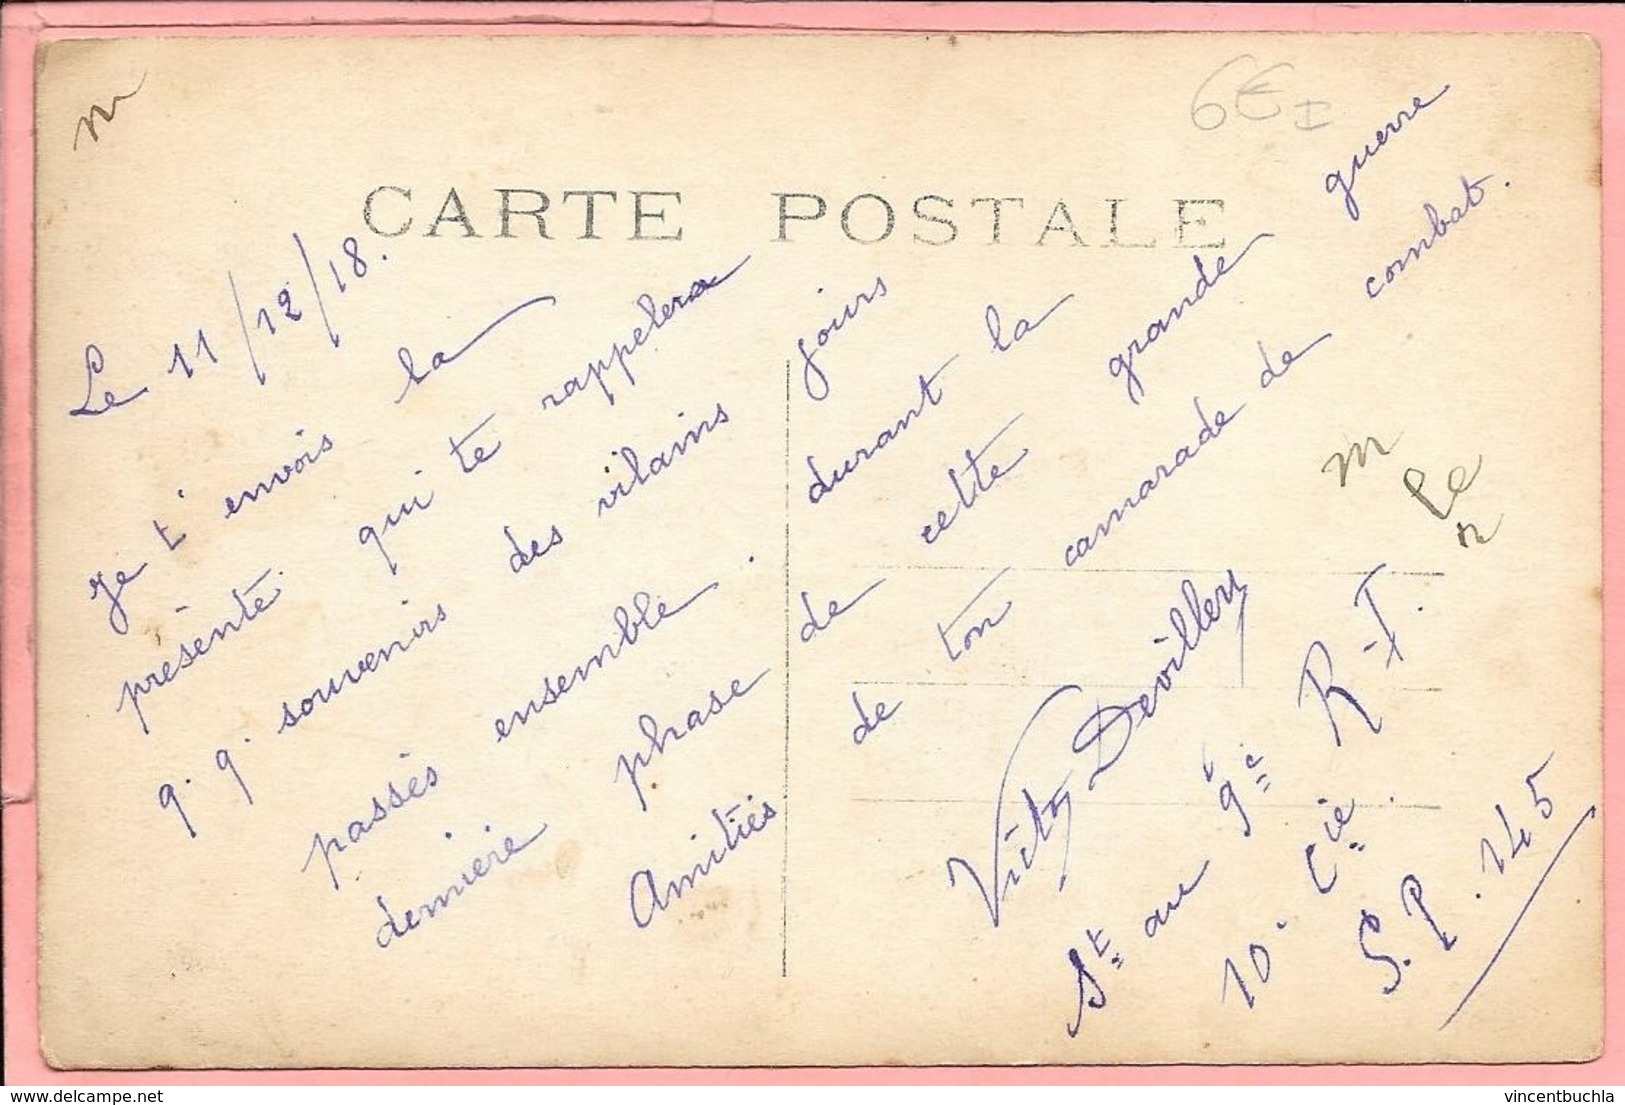 m
6€ I
CARTE POSTALE
Le 11/12/18.
Je t'envois la
présente qui te rappelera
q.q. souvenirs des vilains jours
passés ensemble. durant la
dernière phase de cette grande guerre
Amitiés de ton camarade de combat.
Victor
St au 9e
10e Cie.
S.P. 145
vincentbuchla
delcampe.net